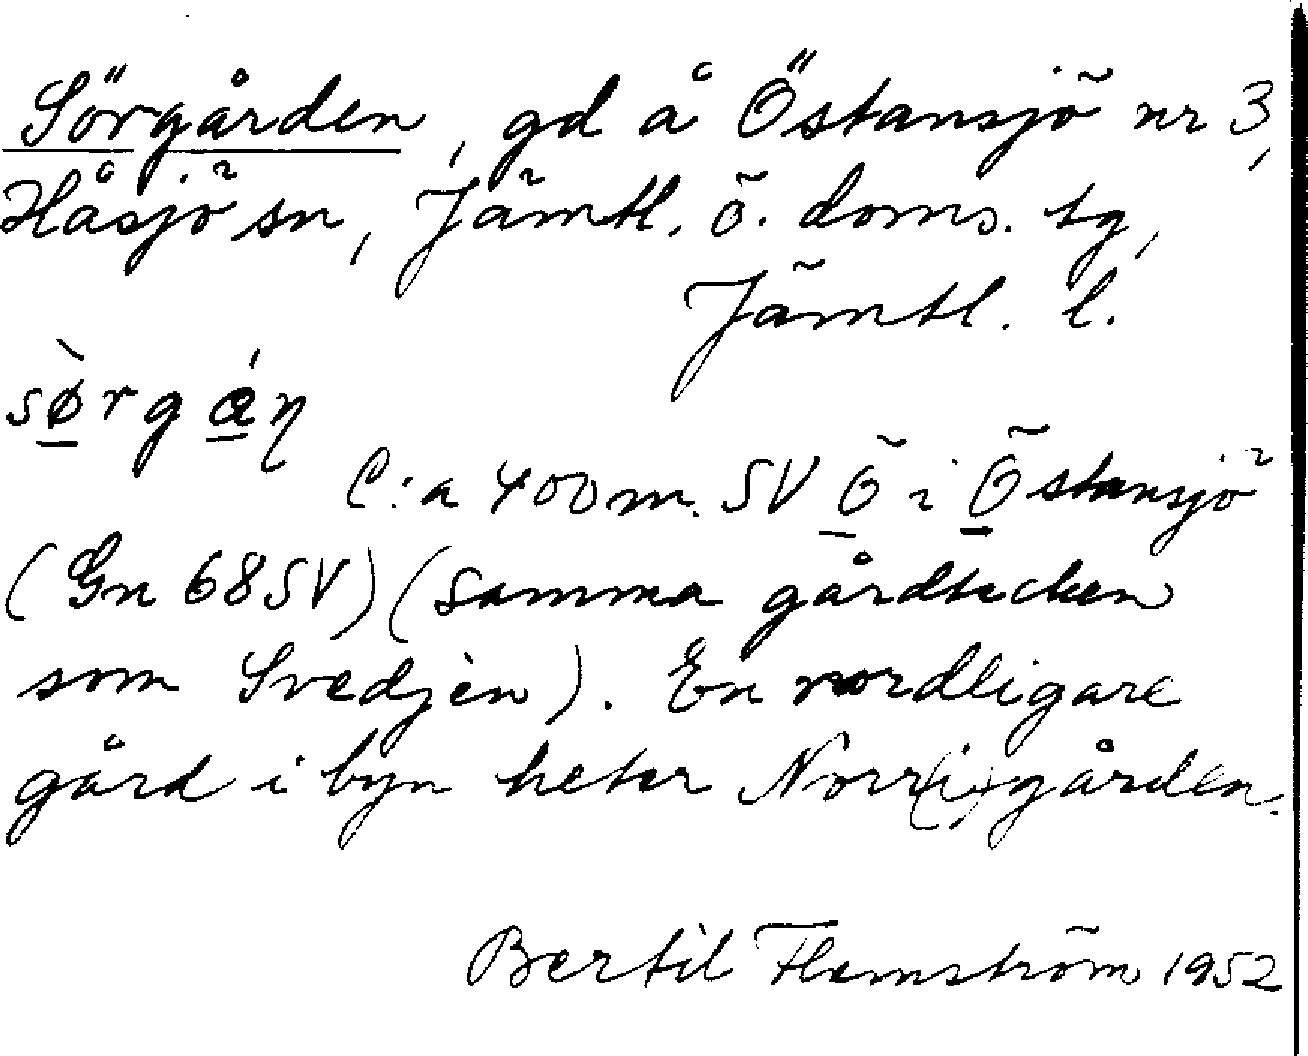 Sörgården, gd å Östansjö nr 3,
Håsjö sn, Jämtl. ö. doms. tg,
Jämtl. l.
sø̀rgǽn
C:a 400 m. SV Ö i Östansjö
(Gn 68 SV) (samma gårdtecken
som Svedjèn). En nordligare
gård i byn heter Norr(i)gården.
Bertil Flemström 1952